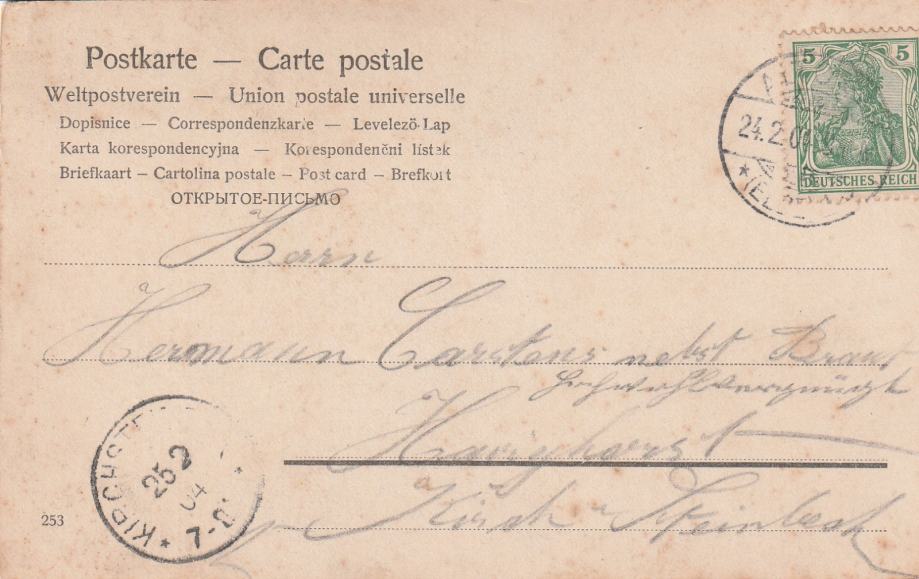 Postkarte — Carte postale
Weltpostverein — Union postale universelle
Dopisnice — Correspondenzkarte — Levelező-Lap
Karta korespondencyjna — Korespondenční lístek
Briefkaart — Cartolina postale — Post card — Brefkort
ОТКРЫТОЕ-ПИСЬМО
5 5
DEUTSCHES REICH
24.2.04
Herrn
Hermann Carstens nebst Braut
Havighorst
Kirch-Steinbek
KIRCHSTE
25 2
04
7-8
253